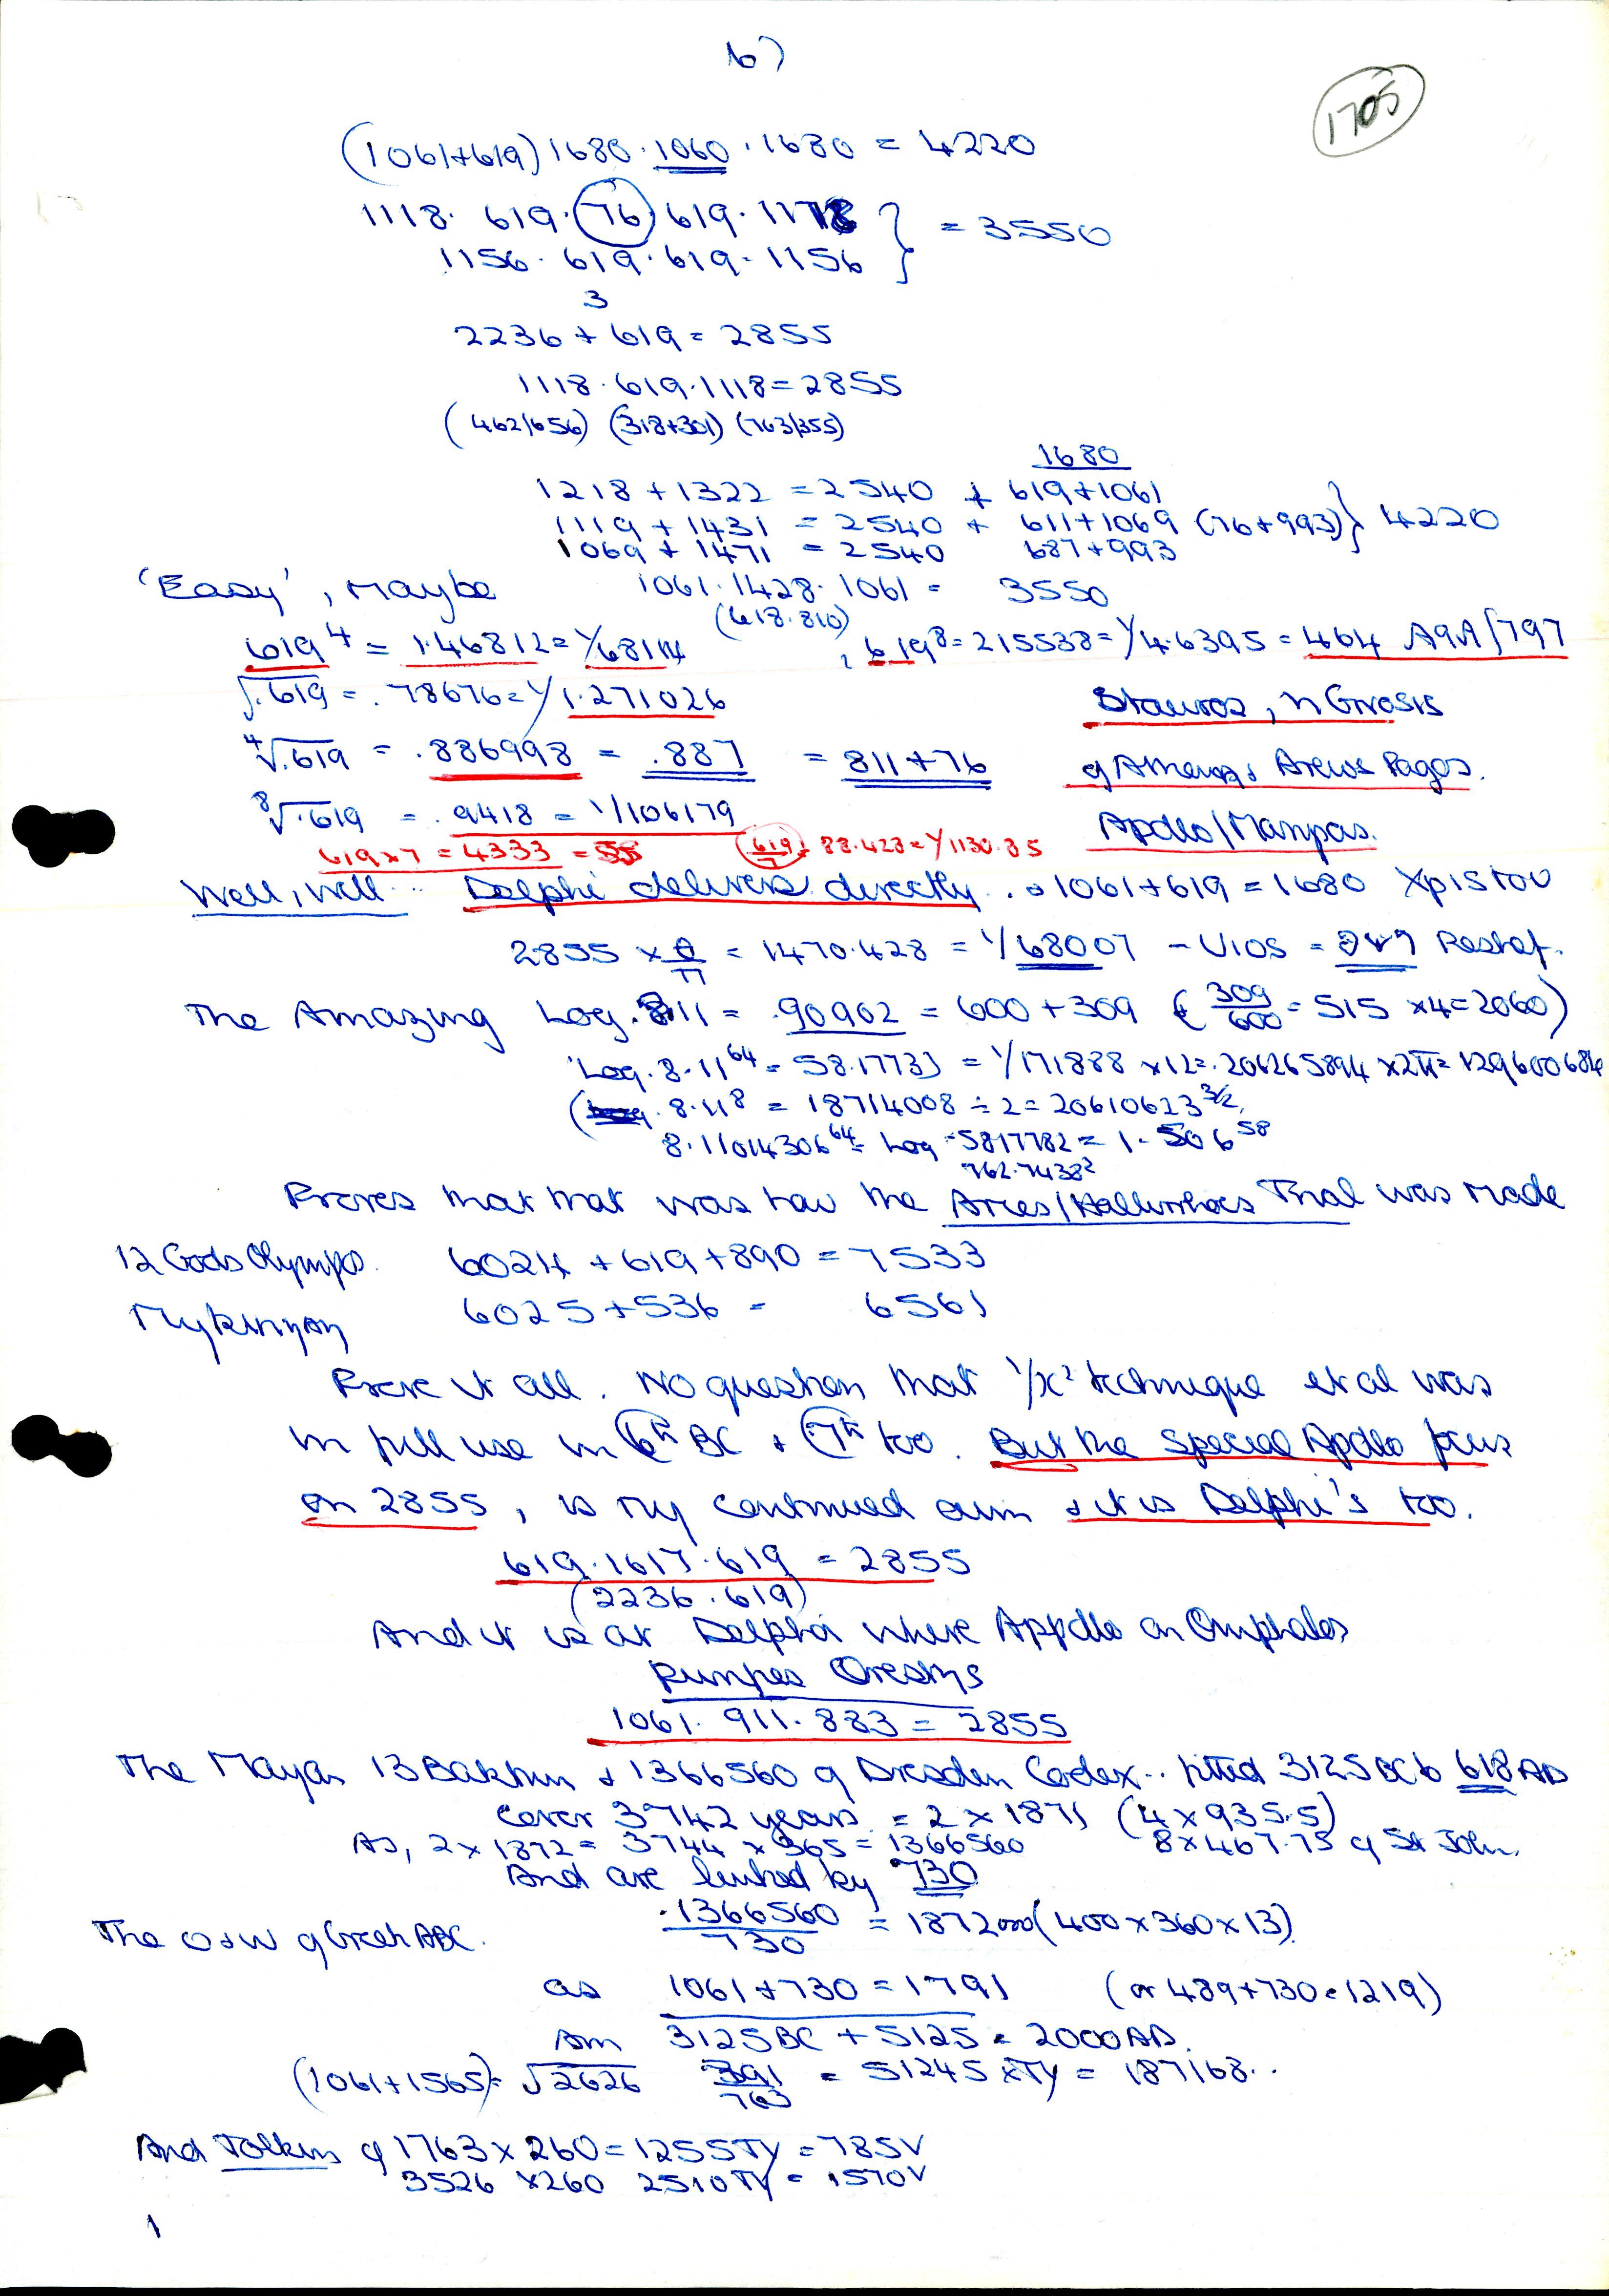 b)
1705
(1061+619) 1680 · 1060 · 1680 = 4220
1118 · 619 · 76 · 619 · 1118 } = 3550
1156 · 619 · 619 · 1156
3
2236 + 619 = 2855
1118 · 619 · 1118 = 2855
(462/656) (318+301) (763/355)
1680
1218 + 1322 = 2540 + 619+1061
1119 + 1431 = 2540 + 611+1069 (76+993) } 4220
1069 + 1471 = 2540 687+993
'Easy', Maybe 1061 · 1428 · 1061 = 3550
(618.810)
619⁴ = 1.46812 = 1/68114 , 619⁸ = 215538 = 1/4.6395 = 464 797
√.619 = .78676 = 1/1.271026 Stauros, n Gnosis
⁴√.619 = .886998 = .887 = 811+76 of Athena, Areios Pagos.
⁸√.619 = .9418 = 1/106179 Apollo/Marpas.
619×7 = 4333 = 55 619/7 = 88.428 = 1/1130.85
Well, Well .. Delphi delivers directly . 1061+619 = 1680 Χριστου
2855 × θ/π = 1470.428 = 1/68007 – UIOS = Reshef.
The Amazing Log. 811 = .90902 = 600 + 309 (309/600 = 515 ×4=2060)
Log. 8.11⁶⁴ = 58.17733 = 1/171888 ×12 = .206265894 ×2π = 129600684
( 8.11⁸ = 18714008 ÷ 2 = 20610623 3/2,
8.11014306⁶⁴ = Log 5817782 = 1.506⁵⁸
762.7438²
Proves that that was how the Arces/Hallirrhoes Trial was Made
12 Gods Olympos. 6024 + 619 + 890 = 7533
Mykinyon 6025 + 536 = 6561
Prove it all. No question that 1/x² technique et al was
in full use in 6th BC & 7th too. But the special Apollo focus
on 2855, is my continued aim & it is Delphi's too.
619 · 1617 · 619 = 2855
(2236 · 619)
And it is at Delphi where Appollo on Omphalos
purifies Orestys
1061 · 911 · 883 = 2855
The Mayan 13 Baktun & 1366560 of Dresden Codex.. fitted 3125 BC to 618 AD
Cover 3742 years = 2 × 1871 (4 × 935.5)
As, 2 × 1872 = 3744 × 365 = 1366560 8 × 467.75 of St John.
And are linked by 730
The O & W of Greek ABC. 1366560/730 = 1872000 (400 × 360 × 13)
as 1061 + 730 = 1791 (or 489+730=1219)
Am 3125BC + 5125 = 2000AD.
(1061+1565) = √2626 391/763 = 51245 × TY = 187168..
And Tolkins of 1763 × 260 = 1255TY = 785V
3526 × 260 2510TY = 1570V
1